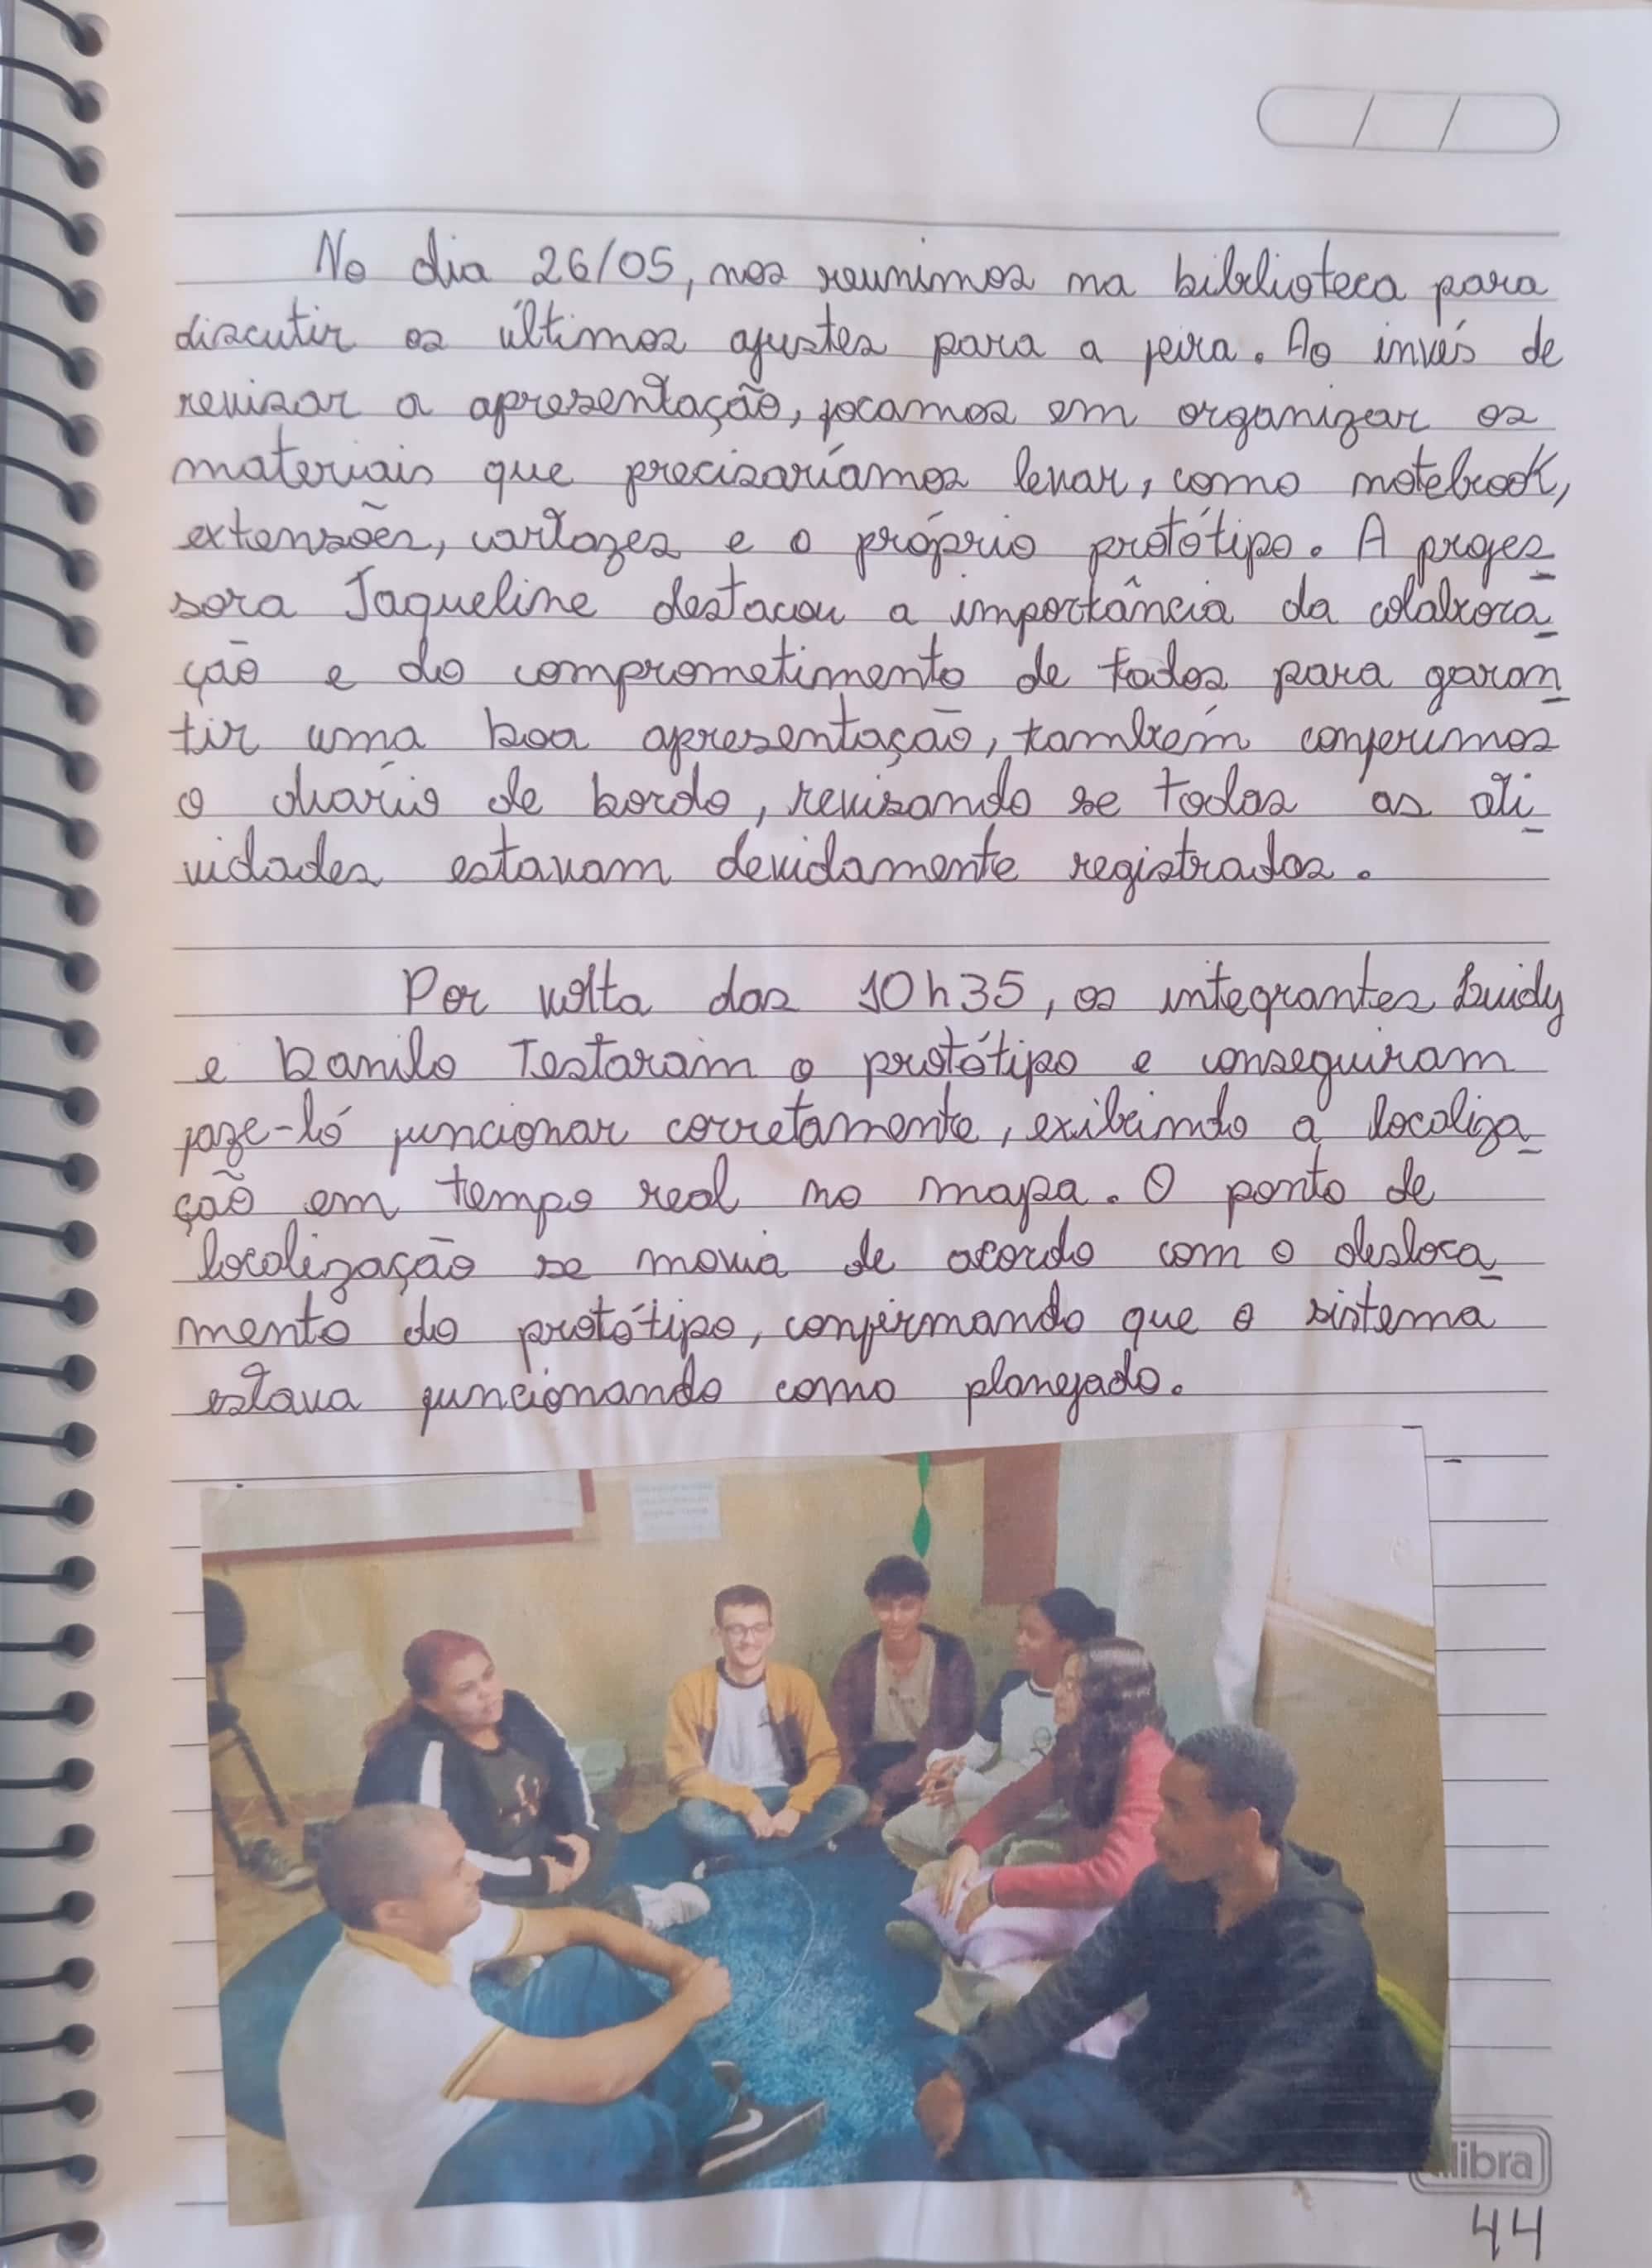 No dia 26/05, nos reunimos na biblioteca para
discutir os últimos ajustes para a feira. Ao invés de
revisar a apresentação, focamos em organizar os
materiais que precisaríamos levar, como notebook,
extensões, cartazes e o próprio protótipo. A profes
sora Jaqueline destacou a importância da colabora
ção e do comprometimento de todos para garan
tir uma boa apresentação, também conferimos
o diário de bordo, revisando se todas as ati
vidades estavam devidamente registradas.
Por volta das 10h35, os integrantes Luidy
e Danilo Testaram o protótipo e conseguiram
faze-ló funcionar corretamente, exibindo a localiza
ção em tempo real no mapa. O ponto de
localização se movia de acordo com o desloca
mento do protótipo, confirmando que o sistema
estava funcionando como planejado.
libra
44